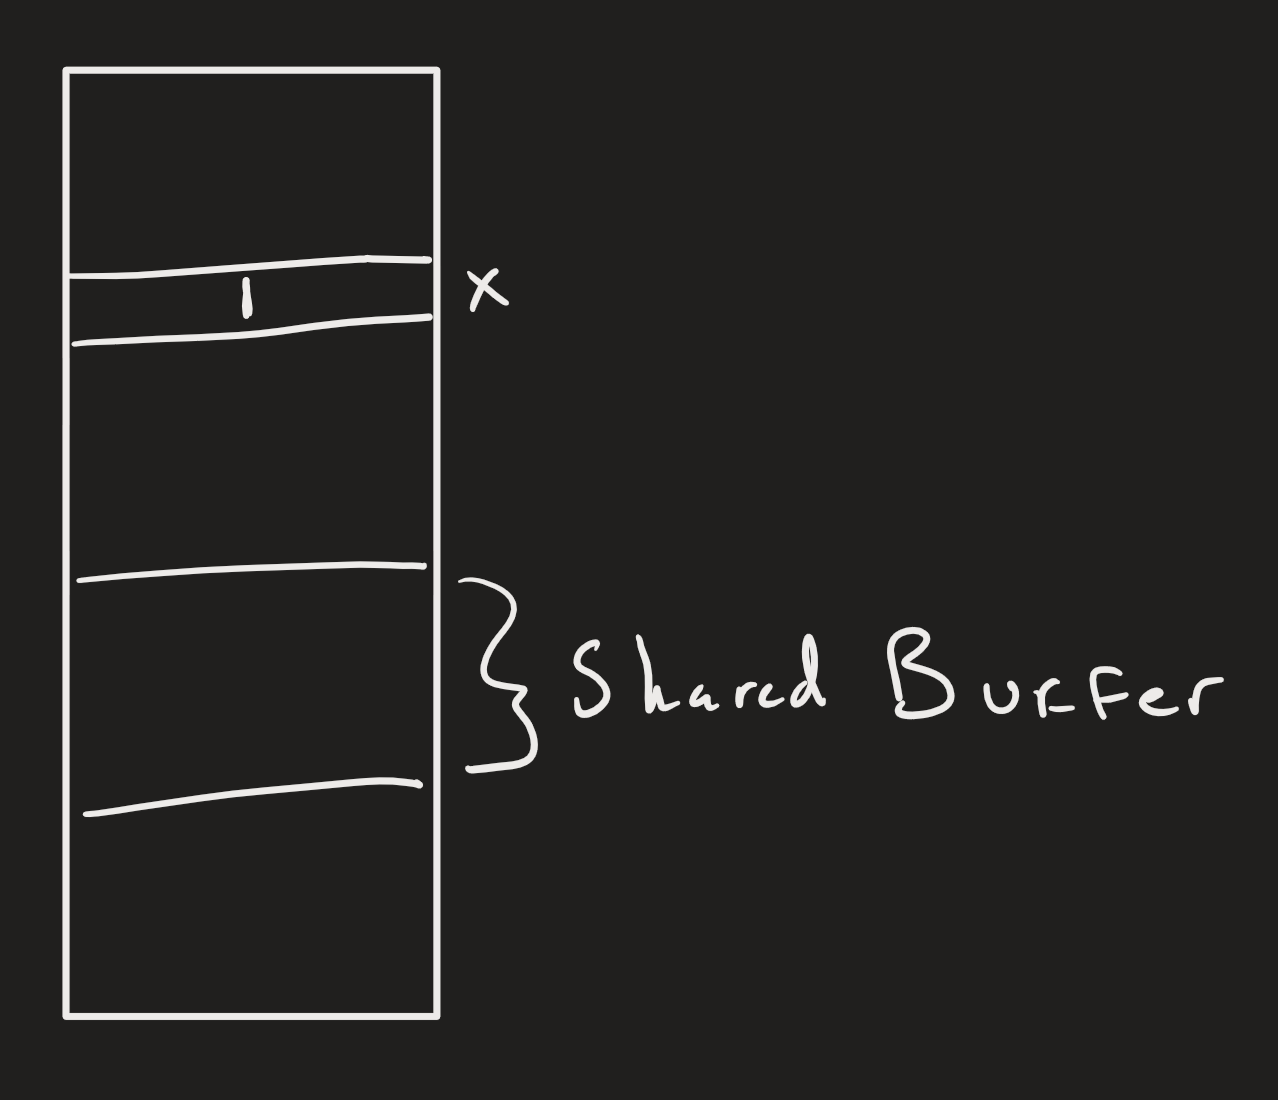 1
x
Shared Buffer